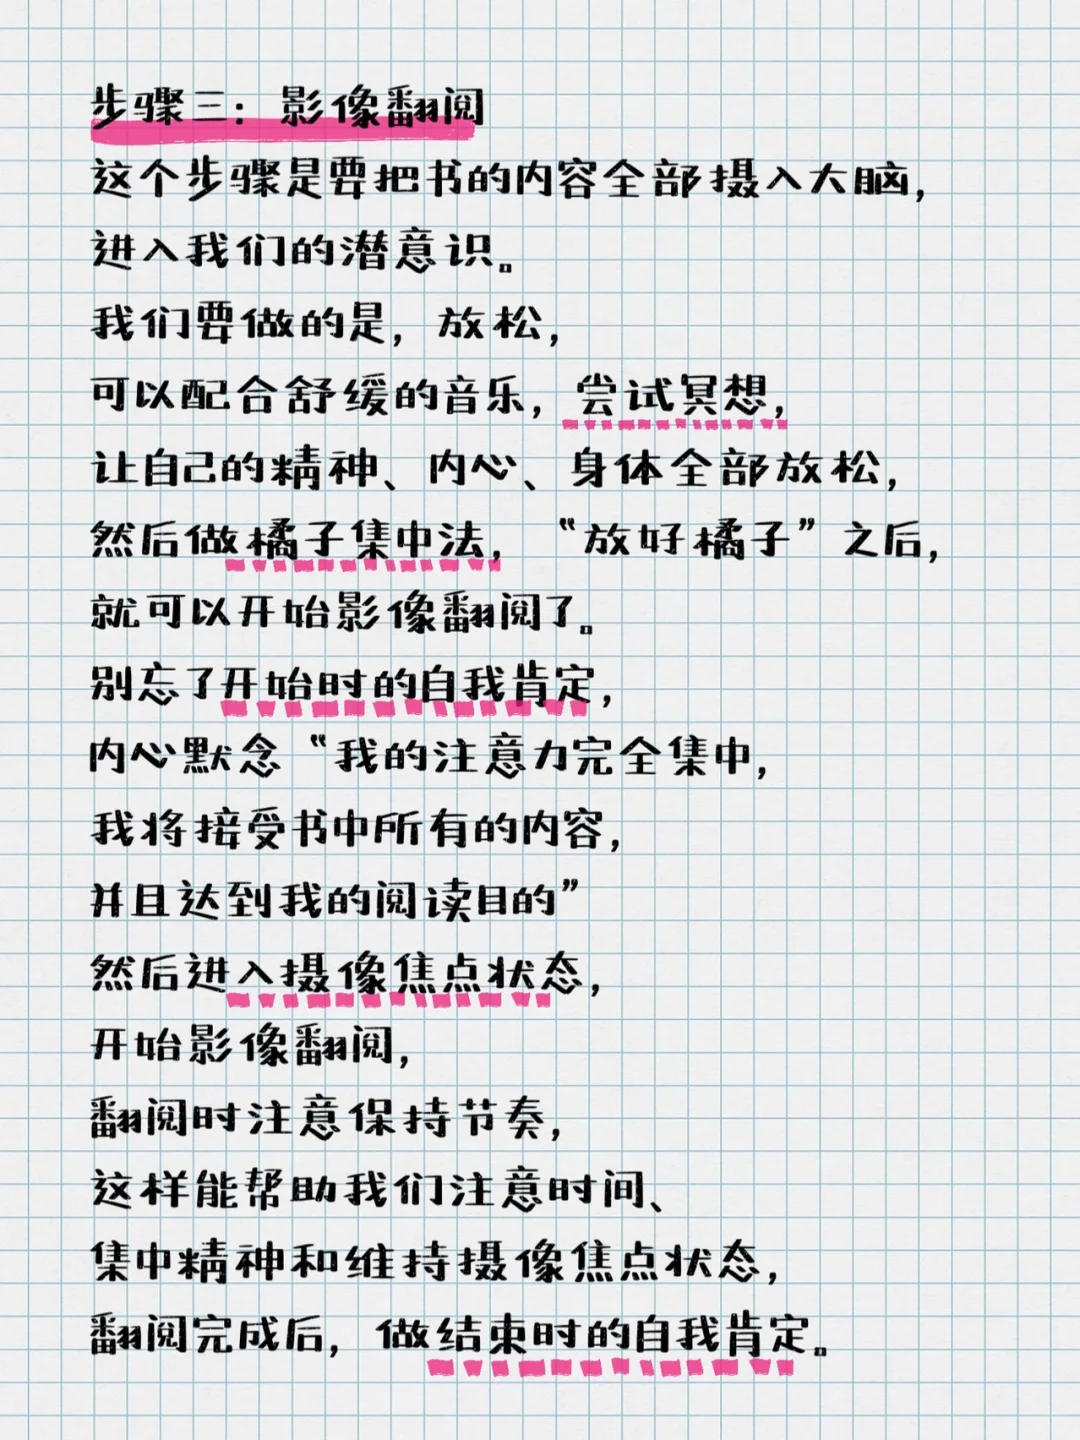 步骤三：影像翻阅
这个步骤是要把书的内容全部摄入大脑，
进入我们的潜意识。
我们要做的是，放松，
可以配合舒缓的音乐，尝试冥想，
让自己的精神、内心、身体全部放松，
然后做橘子集中法，“放好橘子”之后，
就可以开始影像翻阅了。
别忘了开始时的自我肯定，
内心默念“我的注意力完全集中，
我将接受书中所有的内容，
并且达到我的阅读目的”
然后进入摄像焦点状态，
开始影像翻阅，
翻阅时注意保持节奏，
这样能帮助我们注意时间、
集中精神和维持摄像焦点状态，
翻阅完成后，做结束时的自我肯定。